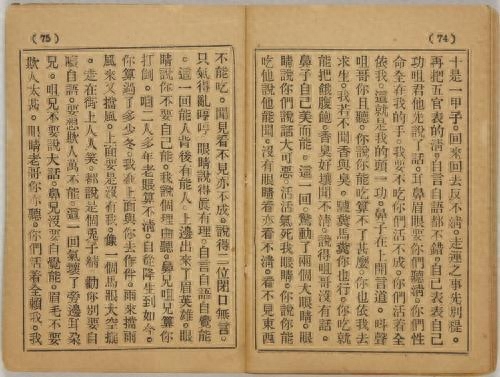 (74)
十是一甲子。回來回去反不清。走運之事先別提。
再把五官表的清。自言自語都不錯。自己表表自己
功。咀君他先說了話。叫鼻眉眼耍你們聽淸。你們性
命全在我的手。我要不吃你們活不成。你們活着全
依我。這就是我的頭一功。鼻子在上開言道。叫聲
咀哥你且聽。你說你能吃算不了甚麽。你也依我去
求生。我若不聞香與臭。驢糞馬糞你也行。你吃就
能把餓腹飽。香臭好壞聞不淸。說得咀哥沒有話。
鼻子自己美而能。這一回。驚動了兩個大眼睛。眼
睛說你們說話大可惡。活活氣死我眼睛。你說你能
吃他說他能聞。沒有眼睛看亦看不淸。看不見東西
(75)
不能吃。聞見看不見亦不成。說得二位閉口無言。
只氣得亂哼哼。眼睛說得眞有理。自言自語自覺能
。這一回能人背後有能人。上邊出來了眉英雄。眼
睛說你不要自己能。我說個理由聽。鼻兄咀兄算你
打倒。咱二人多年老賬算不淸。自從降生到如今。
你算過了多少冬。我在上面與你去作伴。雨來擋雨
風來又擋風。上面要是沒有我。像一個馬眼大空挺
。走在街上人人笑。都說是個兎子精。勸你別要自
誇自語。要想欺人萬不能。這一回氣壞了旁邊耳朶
兄。咀哥你要沒要說大話。鼻兄沒要自覺能。眉毛不要
欺人太甚。眼睛老哥你亦聽。你們活着全賴我。我